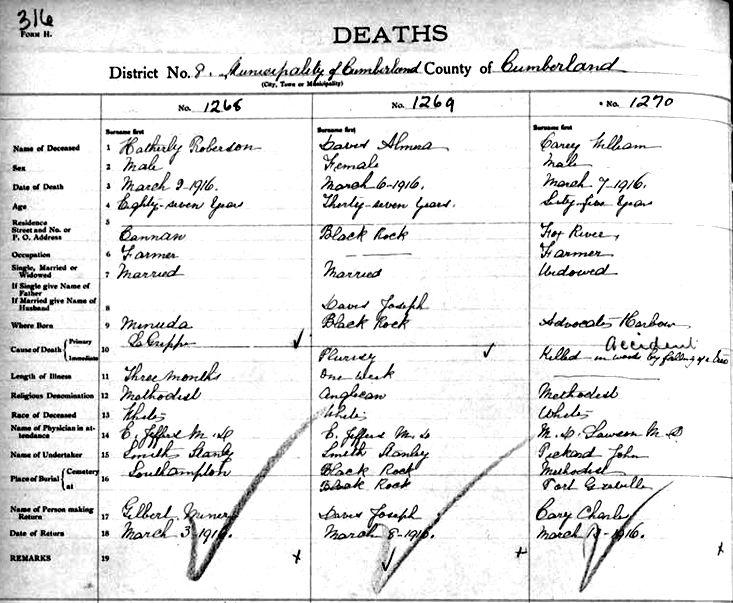 316
FORM H.
DEATHS
District No. 8. Municipality of Cumberland County of Cumberland
(City, Town or Municipality)
No. 1268 No. 1269 No. 1270
Surname first Surname first Surname first
Name of Deceased 1 Hatherly Roberson Davis Almera Carey William
Sex 2 Male Female Male
Date of Death 3 March 2-1916. March 6-1916. March 7-1916.
Age 4 Eighty-seven Years Thirty-seven Years. Sixty-five Years
Residence 5
Street and No. or
P. O. Address Cannan Black Rock Fox River
Occupation 6 Farmer Farmer
Single, Married or
Widowed 7 Married Married Widowed
If Single give Name of
Father
If Married give Name of 8 Davis Joseph
Husband
Where Born 9 Minuda Black Rock Advocate Harbour
Accident
Cause of Death Primary 10 La Grippe ✓ ✓
Immediate Plurisy Killed in woods by falling of a Tree
Length of Illness 11 Three months One Week
Religious Denomination 12 Methodist Anglican Methodist
Race of Deceased 13 White White White
Name of Physician in at-
tendance 14 E. Jeffers M. D E. Jeffers M. D M. D. Lawson M D
Name of Undertaker 15 Smith Stanly Smith Stanley Pickard John
Place of Burial Cemetery 16 Southampton Black Rock Methodist
at Black Rock Port Greville
Name of Person making
Return 17 Gilbert Davis Joseph Cary Charles
Date of Return 18 March 3-1916. March 8-1916. March 1916.
REMARKS 19 x x x